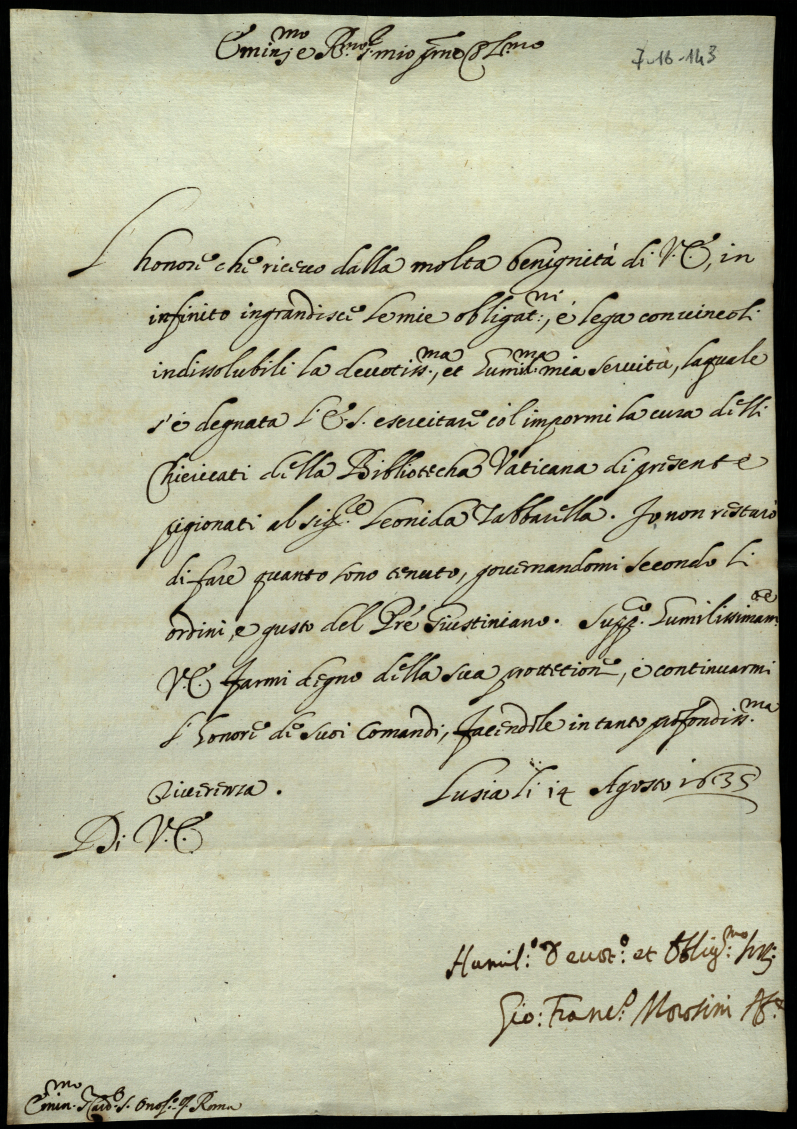 Emin.mo e R.mo S.r mio P.rone Col.mo
7-16-143
L'honore che ricevo dalla molta benignità di V.E., in
infinito ingrandisce le mie obligat.ni, é lega con vincoli
indissolubili la devotiss.ma, et humil.ma mia servitù, la quale
s'é degnata l'E.S. esercitare col impormi la cura delli
Chiericati della Bibliotecha Vaticana di presente
pigionati al sig.re Leonida Zabbarella. Io non restarò
di fare quanto sono tenuto, governandomi secondo li
ordini, e gusto del Pre Giustiniano. Supp.co humilissimam.te
V.E. farmi degno della sua protettione, é continuarmi
l'honore de suoi Comandi, facendole in tanto profondiss.ma
riverenza.
Lusia li 14 Agosto 1635
Di V.E.
Humil.o Devot.o et Oblig.mo
Gio: Fran.co Morosini
Emin.mo S. Card. S. Onof.o Roma